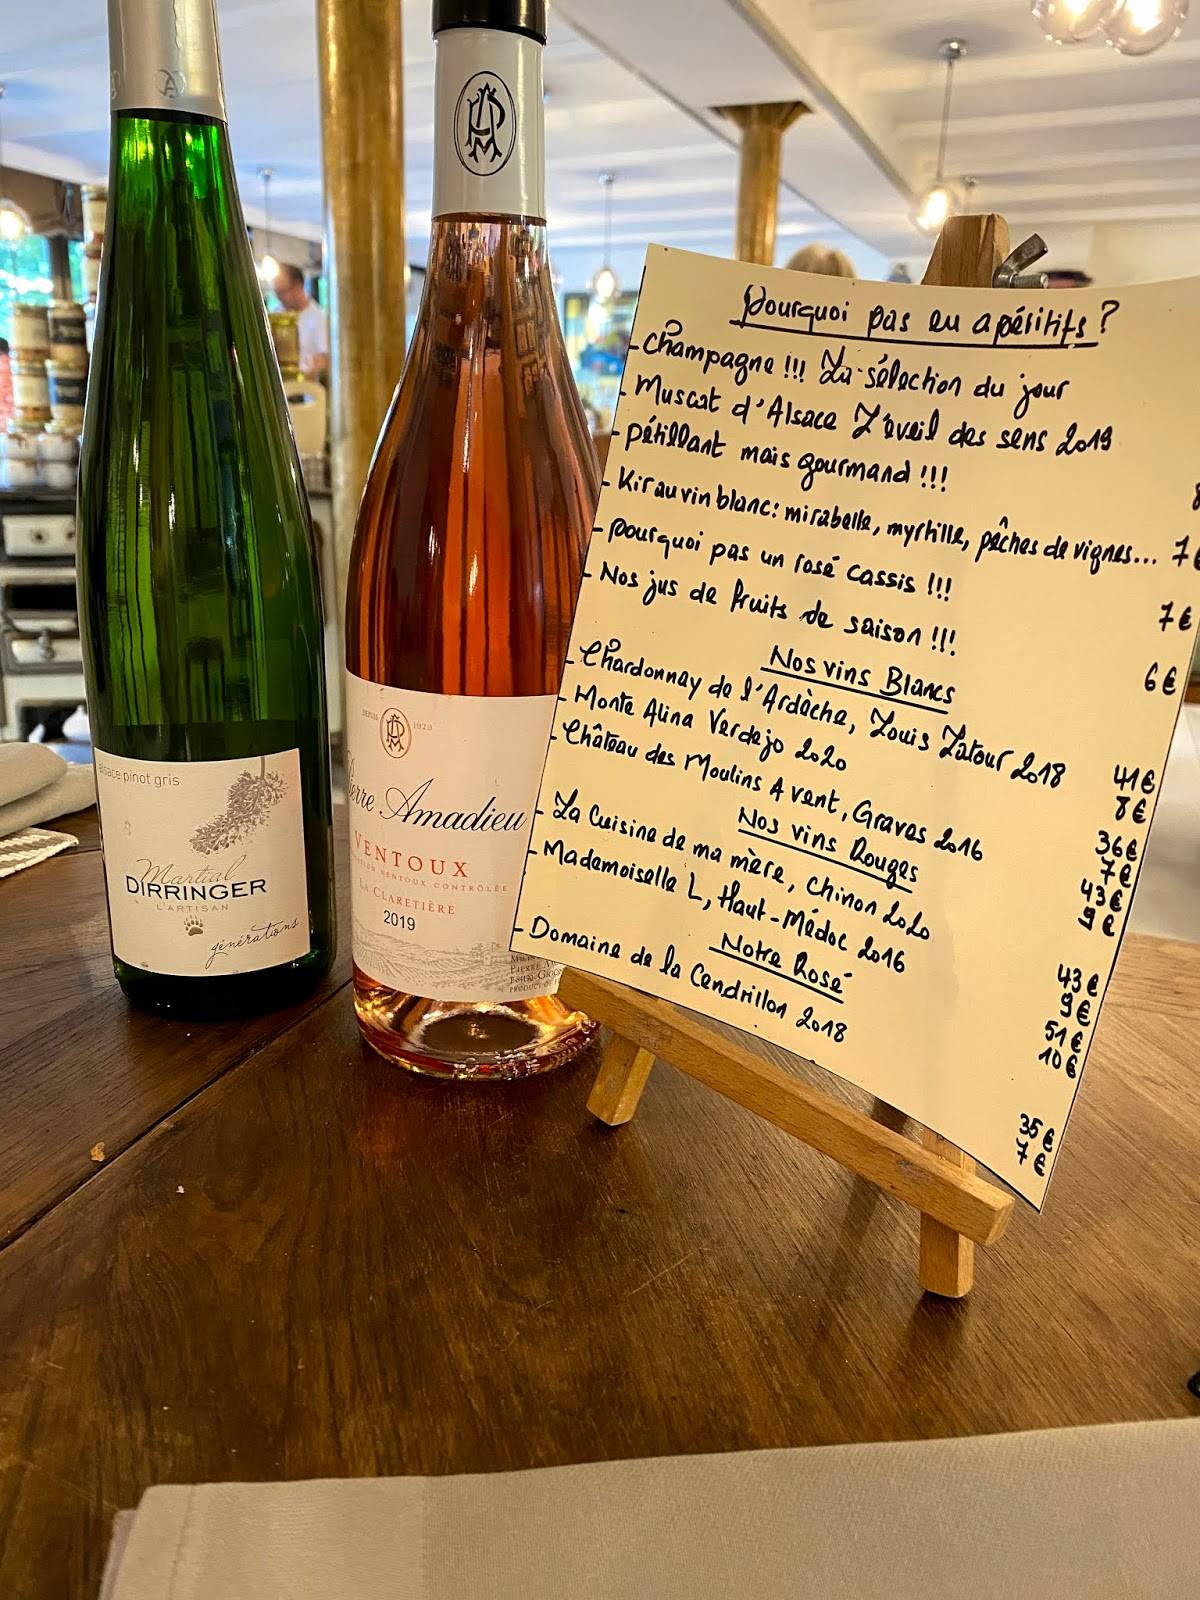 alsace pinot gris
Martial
DIRRINGER
L'ARTISAN
générations
DEPUIS 1929
Pierre Amadieu
VENTOUX
VENTOUX CONTRÔLÉE
LA CLARETIÈRE
2019
Pourquoi pas en apéritifs ?
- Champagne !!! La sélection du jour
- Muscat d'Alsace L'éveil des sens 2019
- pétillant mais gourmand !!! 8
- Kir au vin blanc: mirabelle, myrtille, pêches de vignes... 7€
- pourquoi pas un rosé cassis !!! 7€
- Nos jus de fruits de saison !!! 6€
Nos vins Blancs
- Chardonnay de l'Ardèche, Louis Latour 2018 41€
8€
- Monte Alina Verdejo 2020 36€
7€
- Château des Moulins Avent, Graves 2016 43€
9€
Nos vins Rouges
- La Cuisine de ma mère, Chinon 2020 43€
9€
- Mademoiselle L, Haut-Médoc 2016 51€
10€
Notre Rosé
- Domaine de la Cendrillon 2018 35€
7€